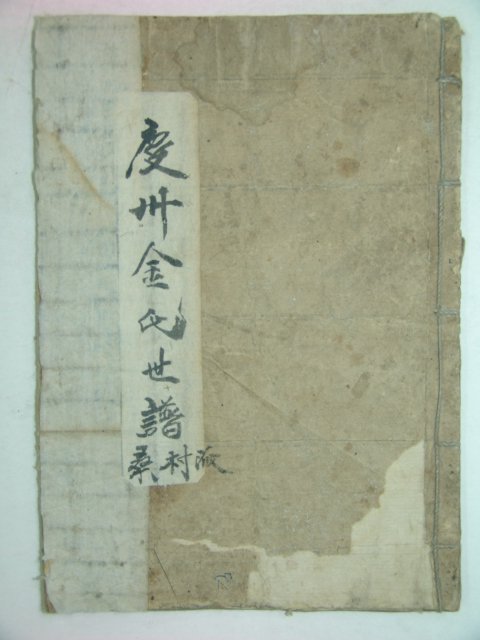 慶州金氏世譜
桑村派